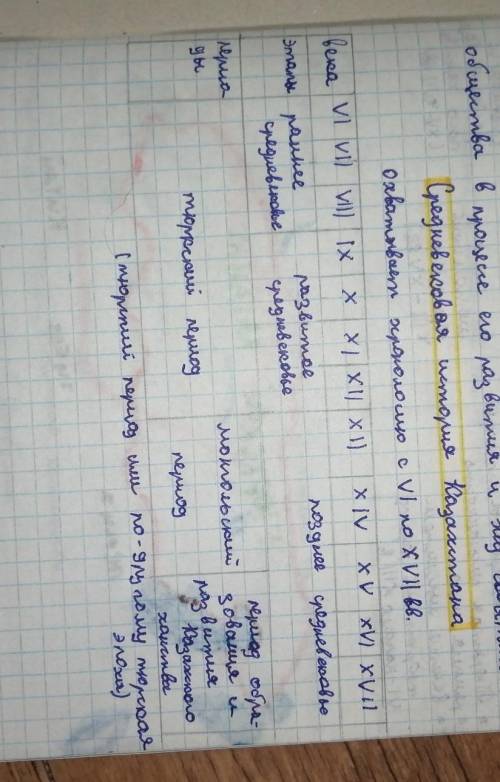 общества в процессе его развития и
Средневековая история Казахстана
охватывает хронологию с VI по XVII вв.
века VI VII VIII IX X XI XII XII XIV XV XVI XVII
этапы раннее средневековье развитое средневековье позднее средневековье
перио
ды
тюркский период
монгольский
период
период обра-
зования и
развития
Казахского
ханства
(тюркский период или по-другому тюрская
эпоха)